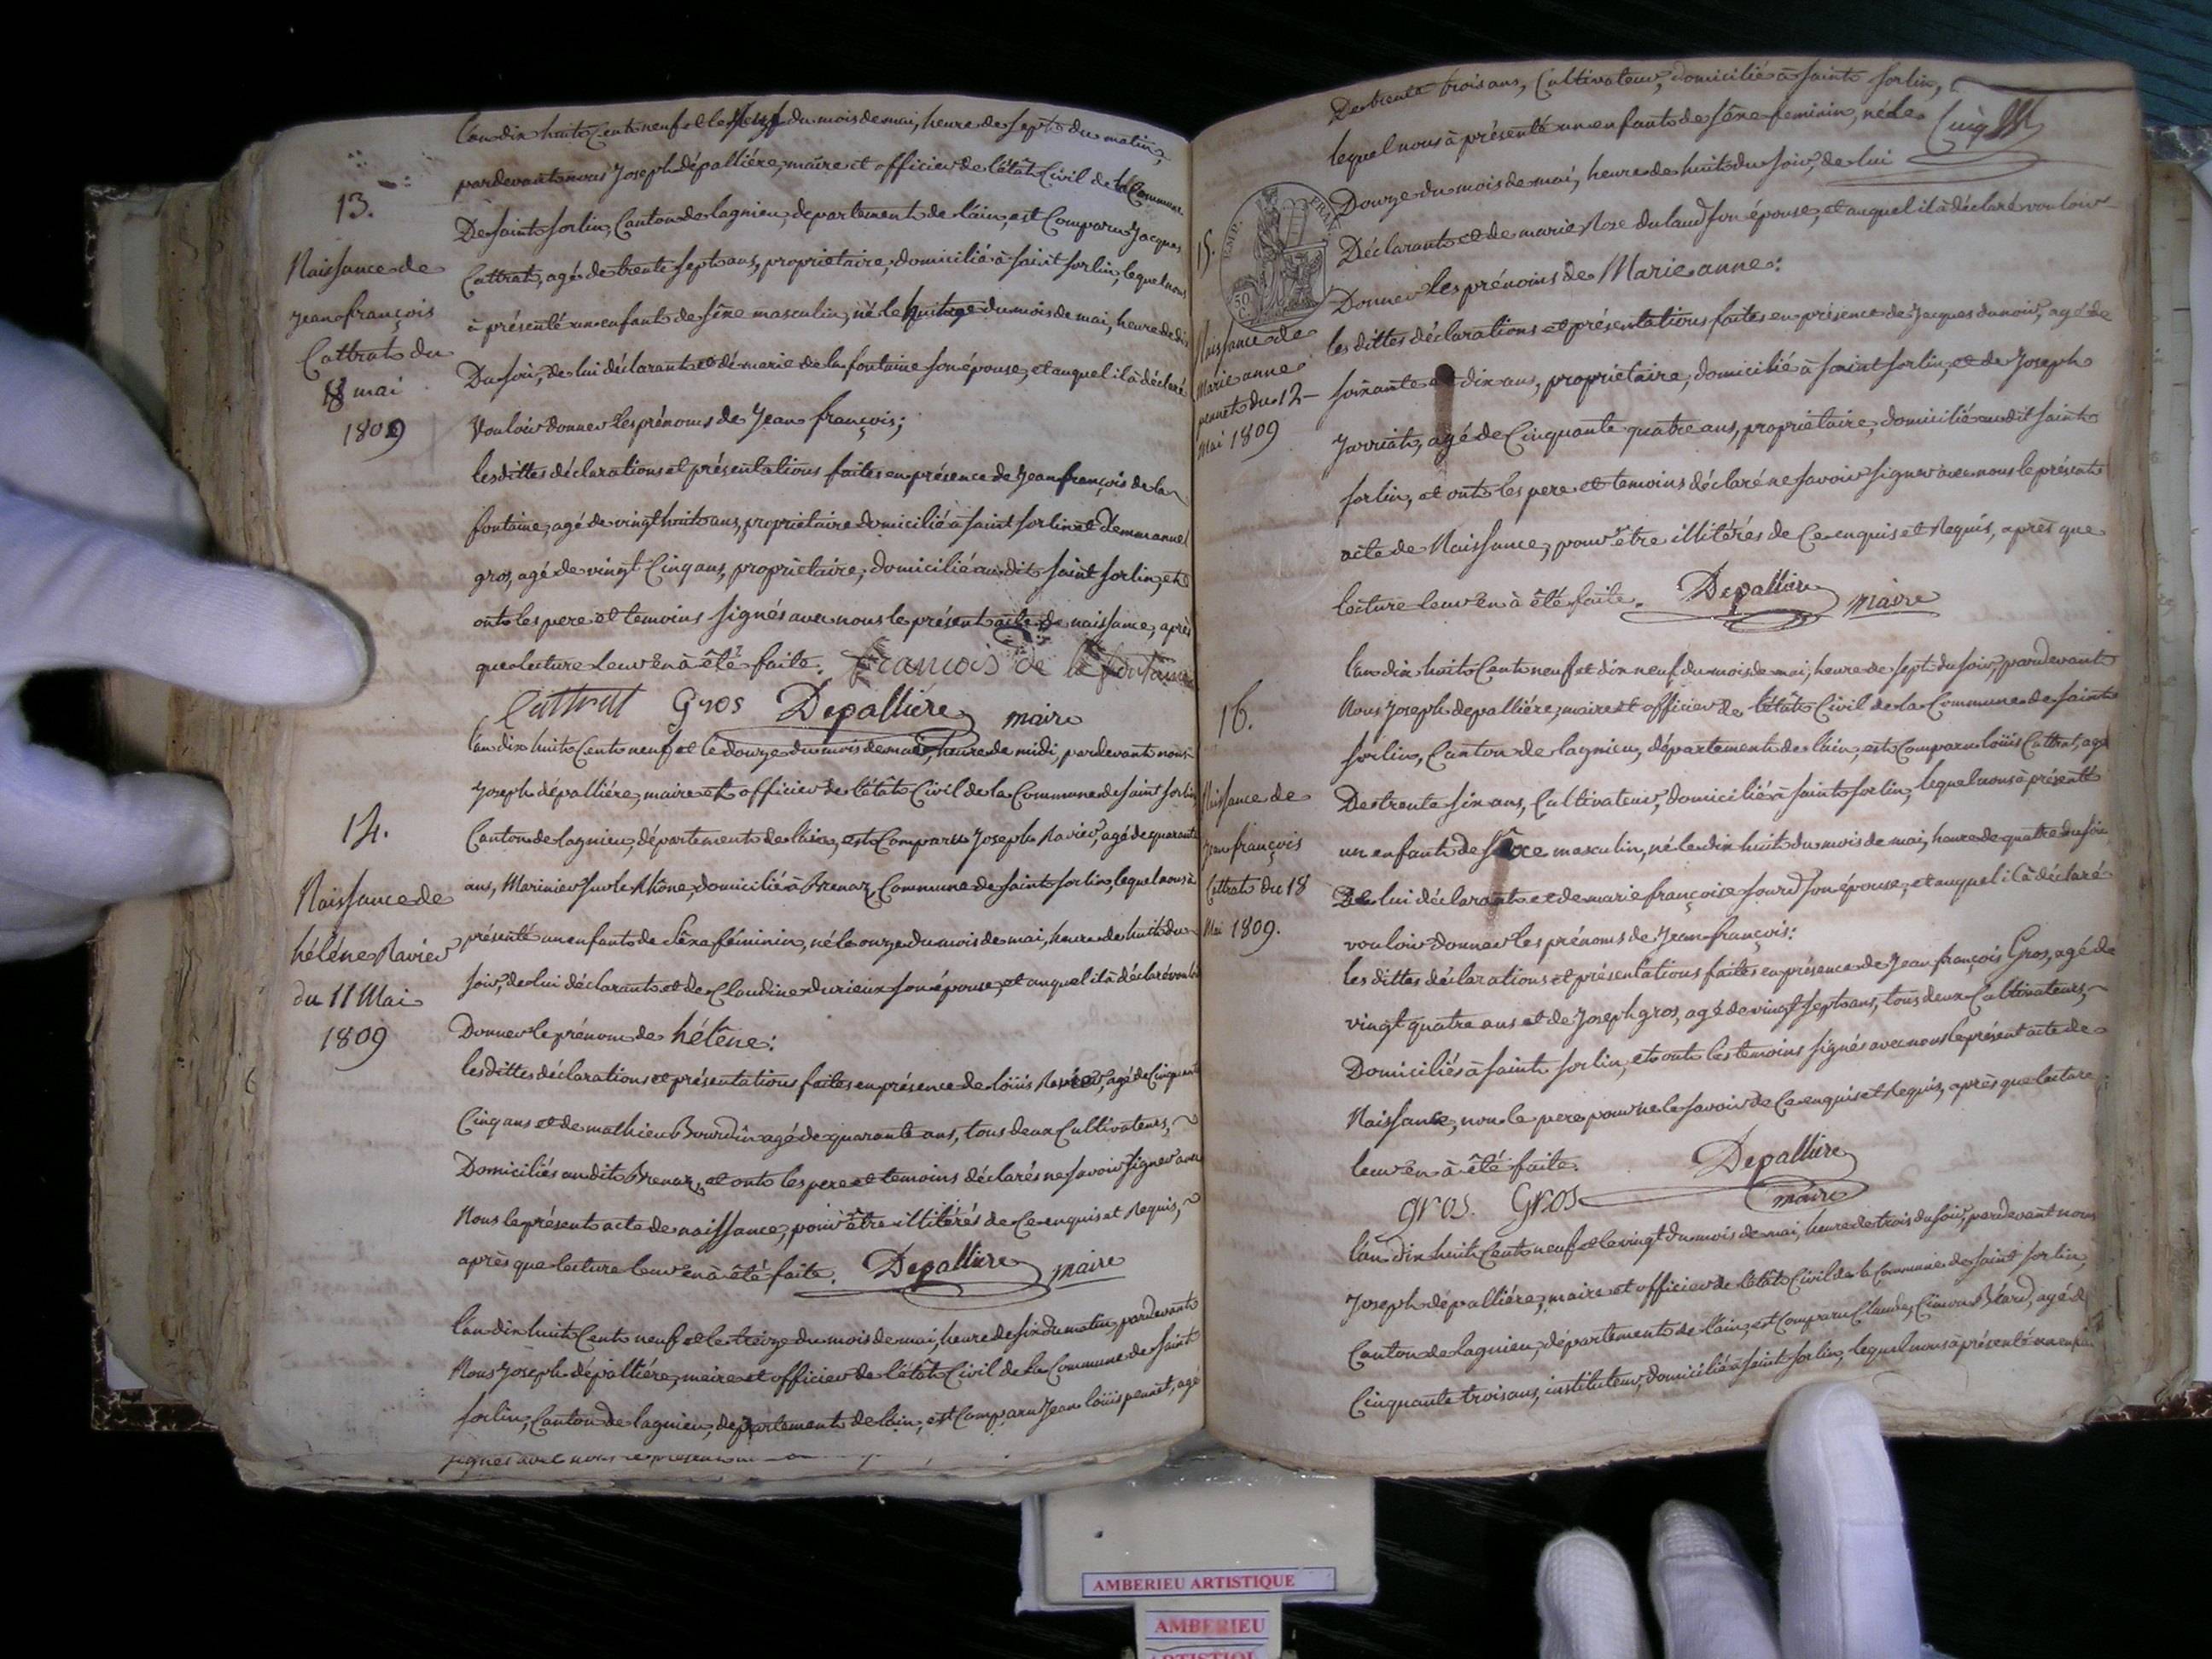 13.
Naissance de
jean françois
Cattrat du
8 mai
1809
L'an dix huit Cent neuf et le du mois de mai, heure de sept du matin,
pardevant nous Joseph dépalliére, maire et officier de l'état Civil de la Commune
De saint sorlin, Canton de lagnieu, departement de l'ain, est Comparu Jacques
Cattrat, agé de trente sept ans, propriétaire, domicilié à saint sorlin, lequel nous
à présenté un enfant de sêxe masculin, né le huit du mois de mai, heure de dix
Du soir, de lui déclarant et de marie de la fontaine son épouse, et auquel il à déclaré
Vouloir donner les prénoms de Jean françois;
les dittes déclarations et présentations faites en présence de Jean françois de la
fontaine, agé de vingt huit ans, propriétaire domicilié à saint sorlin et d'emmanuel
gros, agé de vingt Cinq ans, propriétaire, domicilié au dit saint sorlin, et
ont les pere et temoins signés avec nous le présent acte de naissance, après
que lecture leur en à été faite. francois de la fontaine
Cattrat Gros Depalliére maire
14.
Naissance de
hélène Ravier
du 11 Mai
1809
l'an dix huit Cent neuf et le douze du mois de mai, heure de midi, pardevant nous
Joseph dépalliére, maire et officier de l'état Civil de la Commune de saint sorlin
Canton de lagnieu, département de l'ain, est Comparu Joseph Ravier, agé de quarante
ans, Marinier sur le Rhône, domicilié à Brenaz, Commune de saint sorlin, lequel nous à
présenté un enfant de sêxe féminin, né le onze du mois de mai, heure de huit du
soir, de lui déclarant et de Claudine durieux son épouse, et auquel il à déclaré vouloir
Donner le prénom de hélène:
les dittes déclarations et présentations faites en présence de loüis Ravier, agé de Cinquante
Cinq ans et de mathieu Bourdin agé de quarante ans, tous deux Cultivateurs,
Domiciliés au dit Brenaz, et ont les pere et temoins déclarés ne savoir signer avec
Nous le présent acte de naissance, pour être illitérés de Ce enquis et Requis,
après que lecture leur en à été faite. Depalliere maire
l'an dix huit Cent neuf et le treize du mois de mai, heure de six du matin, pardevant
Nous Joseph dépalliére, maire et officier de l'état Civil de la Commune de saint
sorlin, Canton de lagnieu, département de lain, est Comparu Jean loüis pennet, agé
signés avec nous le présent
De trente trois ans, Cultivateur, domicilié à saint sorlin,
lequel nous à présenté un enfant de sêxe feminin, né le
Douze du mois de mai, heure de huit du soir, de lui
Déclarant et de marie Rose dulaud son épouse, et auquel il à déclaré vouloir
Donner les prénoms de Marie anne:
EMP. FRAN.
50 C.
15.
Naissance de
Marie anne
pennet du 12
Mai 1809
les dittes déclarations et présentations faites en présence de Jacques dunoir, agé de
soixante et dix ans, propriétaire, domicilié à saint sorlin, et de Joseph
Jarriat, agé de Cinquante quatre ans, propriétaire, domicilié audit saint
sorlin, et ont les pere et temoins déclaré ne savoir signer avec nous le présent
acte de Naissance, pour être illitérés de Ce enquis et Requis, après que
lecture leur en à été faite. Depalliere maire
16.
Naissance de
jean françois
Cattrat du 18
Mai 1809.
l'an dix huit Cent neuf et dix neuf du mois de mai, heure de sept du soir, pardevant
Nous Joseph depalliére, maire et officier de l'état Civil de la Commune de saint
sorlin, Canton de lagnieu, département de l'ain, est Comparu loüis Cattrat, agé
De trente six ans, Cultivateur, domicilié à saint sorlin, lequel nous à présenté
un enfant de sêxe masculin, né le dix huit du mois de mai, heure de quatre du soir
De lui déclarant et de marie françoise sourd son épouse, et auquel il à déclaré
vouloir donner les prénoms de Jean françois:
les dittes déclarations et présentations faites en présence de Jean françois Gros, agé de
vingt quatre ans et de Joseph gros, agé de vingt sept ans, tous deux Cultivateurs,
Domiciliés à saint sorlin, et ont les temoins signés avec nous le présent acte de
Naissance, non le pere pour ne le savoir de Ce enquis et Requis, après que lecture
leur en à été faite. Depalliere
gros. Gros maire
l'an dix huit Cent neuf et le vingt du mois de mai, heure de trois du soir, pardevant nous
Joseph dépalliére, maire et officier de l'état Civil de la Commune de saint sorlin,
Canton de lagnieu, département de l'ain, est Comparu Claude, Béard, agé de
Cinquante trois ans, instituteur, domicilié à saint sorlin, lequel nous à présenté un enfant
AMBERIEU ARTISTIQUE
AMBERIEU
ARTISTIQUE